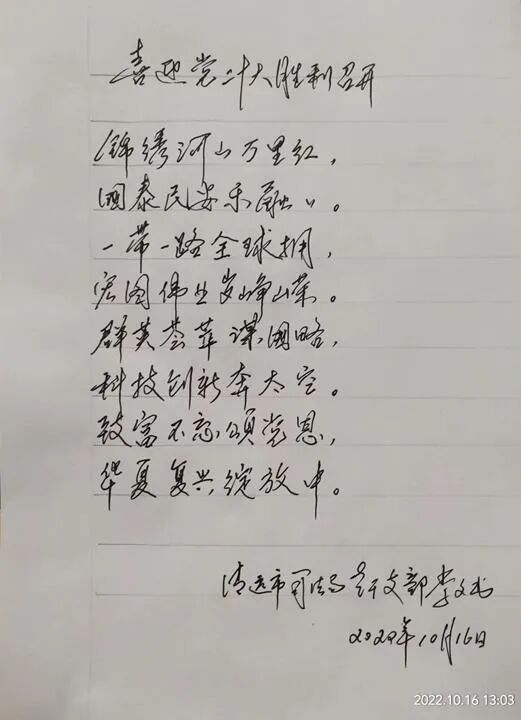 喜迎党二十大胜利召开
锦绣河山万里红，
国泰民安乐融〃。
一带一路全球拥，
宏图伟业岁峥嵘。
群英荟萃谋国略，
科技创新奔太空。
致富不忘颂党恩，
华夏复兴绽放中。
清远市司法局老干支部李文武
2022年10月16日
2022.10.16 13:03